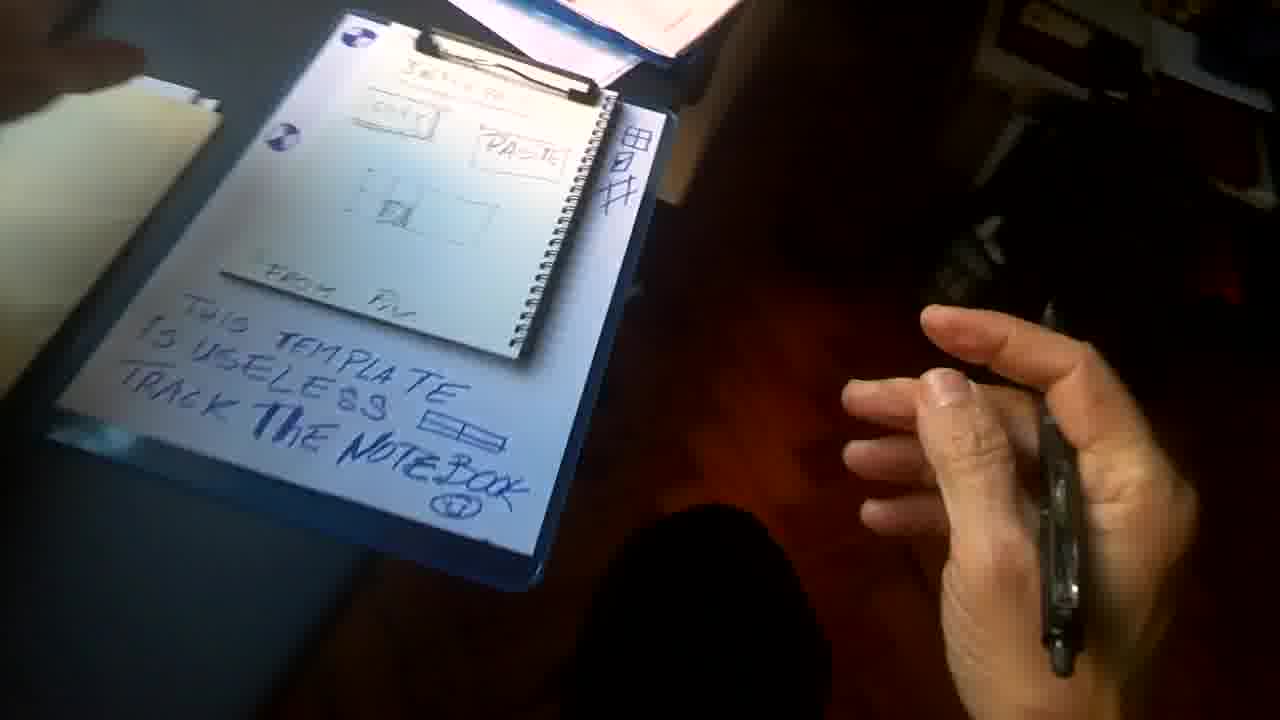 PASTE
FROM
THIS TEMPLATE
IS USELESS
TRACK THE NOTEBOOK